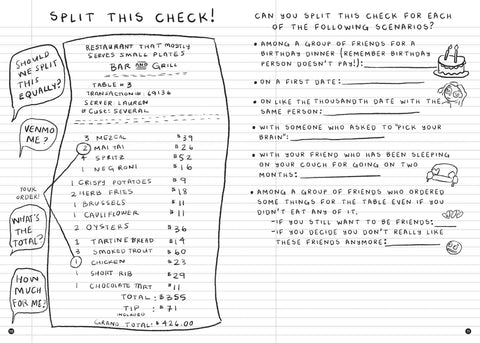 SPLIT THIS CHECK!
SHOULD
WE SPLIT
THIS
EQUALLY?
VENMO
ME?
YOUR
ORDER!
WHAT'S
THE
TOTAL?
HOW
MUCH
FOR ME?
RESTAURANT THAT MOSTLY
SERVES SMALL PLATES
BAR AND GRILL
TABLE #3
TRANSACTION #: 69136
SERVER LAUREN
# CUST: SEVERAL
3 MEZCAL $39
2 MAI TAI $26
4 SPRITZ $52
1 NEGRONI $16
1 CRISPY POTATOES $9
2 HERB FRIES $18
1 BRUSSELS $11
1 CAULIFLOWER $11
2 OYSTERS $36
1 TARTINE BREAD $14
3 SMOKED TROUT $60
1 CHICKEN $23
1 SHORT RIB $29
1 CHOCOLATE TART $11
TOTAL: $355
TIP: $71
INCLUDED
GRAND TOTAL: $426.00
CAN YOU SPLIT THIS CHECK FOR EACH
OF THE FOLLOWING SCENARIOS?
• AMONG A GROUP OF FRIENDS FOR A
BIRTHDAY DINNER (REMEMBER BIRTHDAY
PERSON DOESN'T PAY!):
• ON A FIRST DATE:
• ON LIKE THE THOUSANDTH DATE WITH THE
SAME PERSON:
• WITH SOMEONE WHO ASKED TO "PICK YOUR
BRAIN":
• WITH YOUR FRIEND WHO HAS BEEN SLEEPING
ON YOUR COUCH FOR GOING ON TWO
MONTHS:
• AMONG A GROUP OF FRIENDS WHO ORDERED
SOME THINGS FOR THE TABLE EVEN IF YOU
DIDN'T EAT ANY OF IT.
-IF YOU STILL WANT TO BE FRIENDS:
-IF YOU DECIDE YOU DON'T REALLY LIKE
THESE FRIENDS ANYMORE: